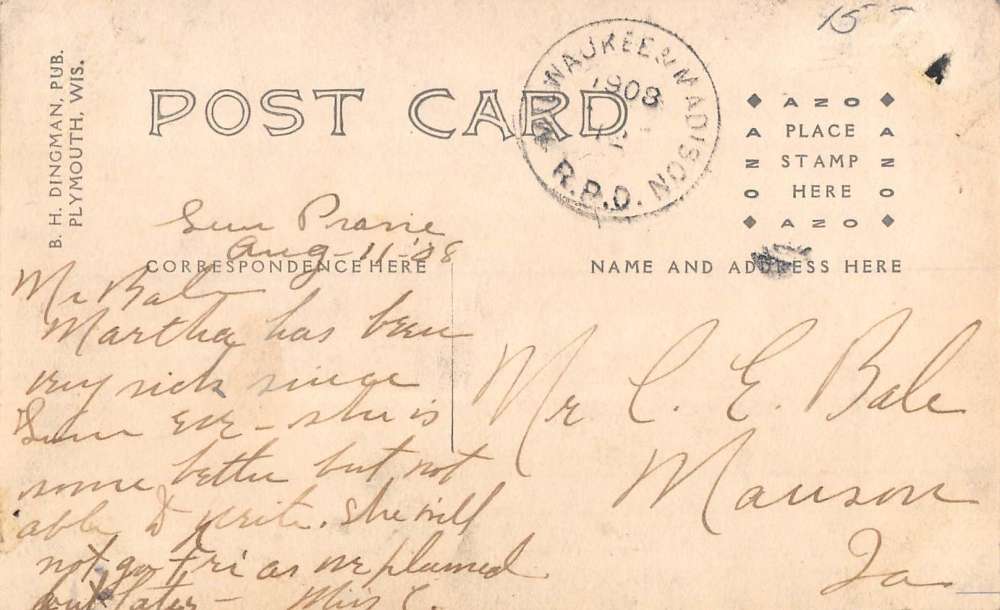 15-
B. H. DINGMAN, PUB.
PLYMOUTH, WIS.
POST CARD
WAUKEE & MADISON
1908
R.P.O.
AZO
PLACE
STAMP
HERE
AZO
Sun Prarie
Aug-11-'08
CORRESPONDENCE HERE
NAME AND ADDRESS HERE
Mr Bale
Martha has been
very sick since
Sun eve - she is
some better but not
able to write. She will
not go Fri as we planned
but later - Miss C.
Mr C. E. Bale
Manson
Ia.